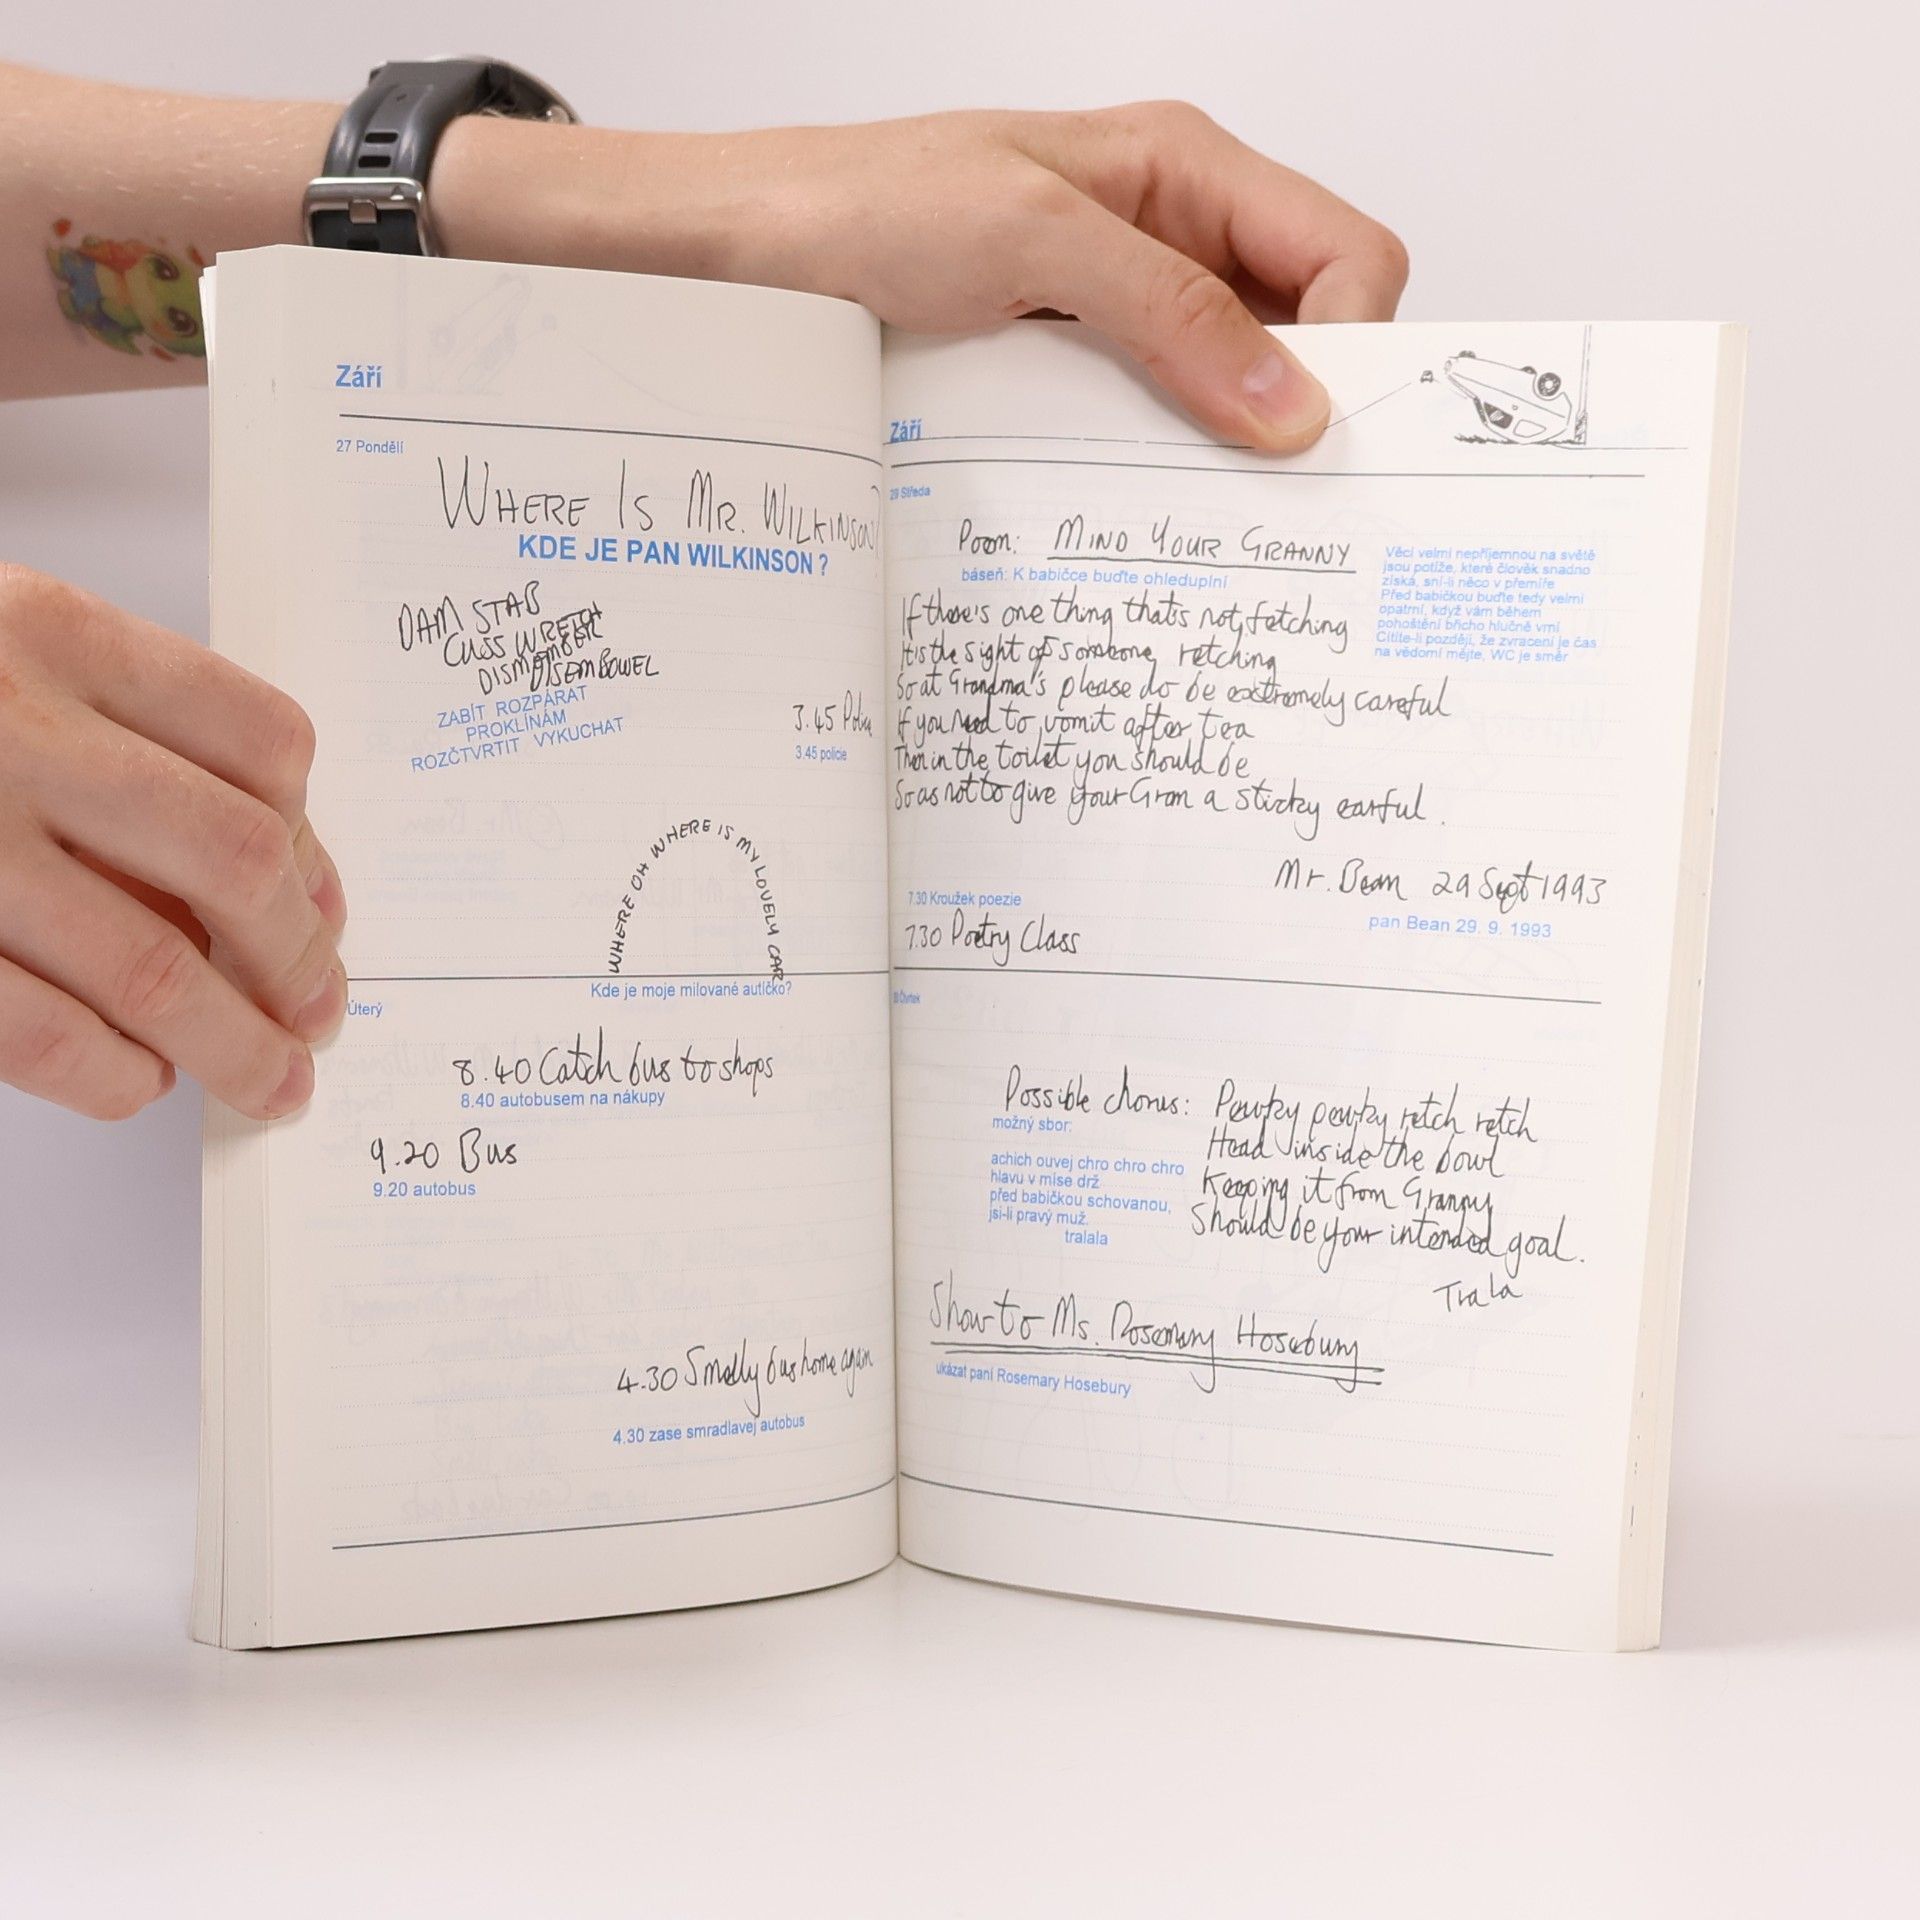 Září
27 Pondělí
WHERE IS MR. WILKINSON?
KDE JE PAN WILKINSON ?
DAM STAB
CUSS WRETCH
DISMEMBER
DISEMBOWEL
ZABÍT ROZPÁRAT
PROKLÍNÁM
ROZČTVRTIT VYKUCHAT
3.45 Police
3.45 policie
WHERE OH WHERE IS MY LOVELY CAR
Kde je moje milované autíčko?
Úterý
8.40 Catch bus to shops
8.40 autobusem na nákupy
9.20 Bus
9.20 autobus
4.30 Smelly bus home again
4.30 zase smradlavej autobus
Září
29 Středa
Poem: MIND YOUR GRANNY
báseň: K babičce buďte ohleduplní
Věcí velmi nepříjemnou na světě
jsou potíže, které člověk snadno
získá, sní-li něco v přemíře
Před babičkou buďte tedy velmi
opatrní, když vám během
pohoštění břicho hlučně vrní
Cítíte-li později, že zvracení je čas
na vědomí mějte, WC je směr
If there's one thing that's not fetching
It is the sight of someone retching
So at Grandma's please do be extremely careful
If you need to vomit after tea
Then in the toilet you should be
So as not to give your Gran a sticky earful.
Mr. Bean 29 Sept 1993
pan Bean 29. 9. 1993
7.30 Kroužek poezie
7.30 Poetry Class
30 Čtvrtek
Possible chorus: Pewky pewky retch retch
možný sbor:
Head inside the bowl
Keeping it from Granny
Should be your intended goal.
Tra la
achich ouvej chro chro chro
hlavu v míse drž
před babičkou schovanou,
jsi-li pravý muž.
tralala
Show to Ms. Rosemary Hosebury
ukázat paní Rosemary Hosebury